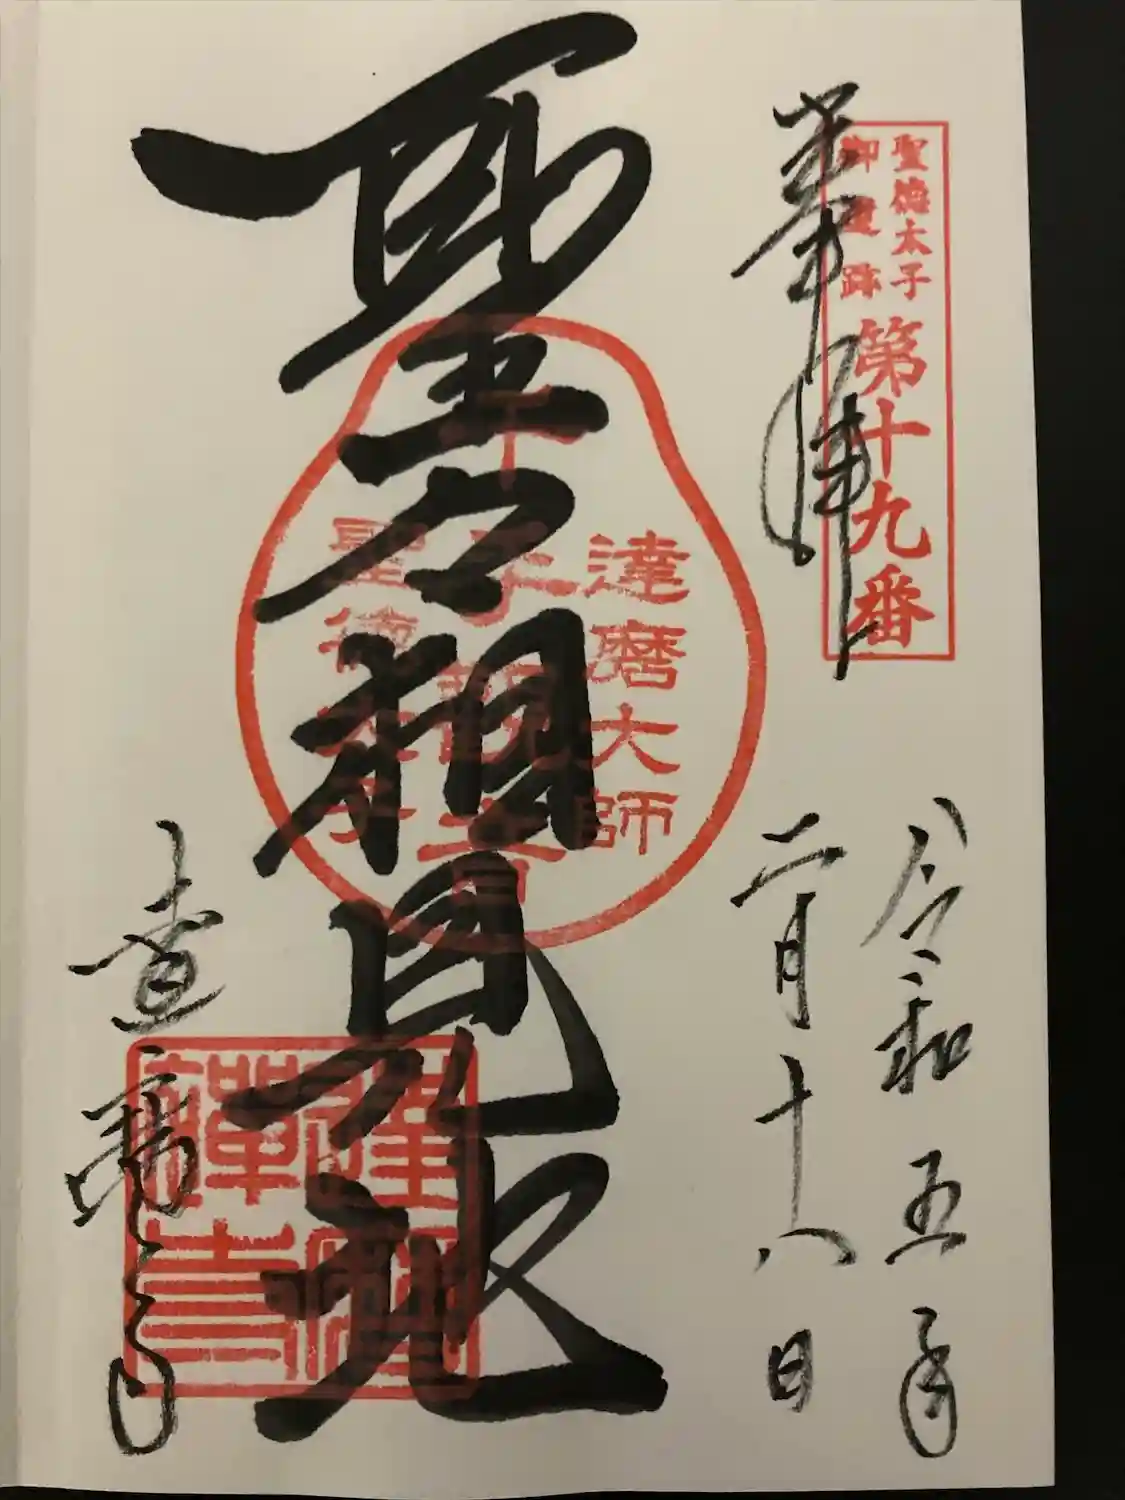 聖徳太子
御遺跡
第十九番
奉拝
令和五年
二月十八日
聖々相見処
達磨大師
千手観音
聖徳太子
達磨禅寺
達磨寺